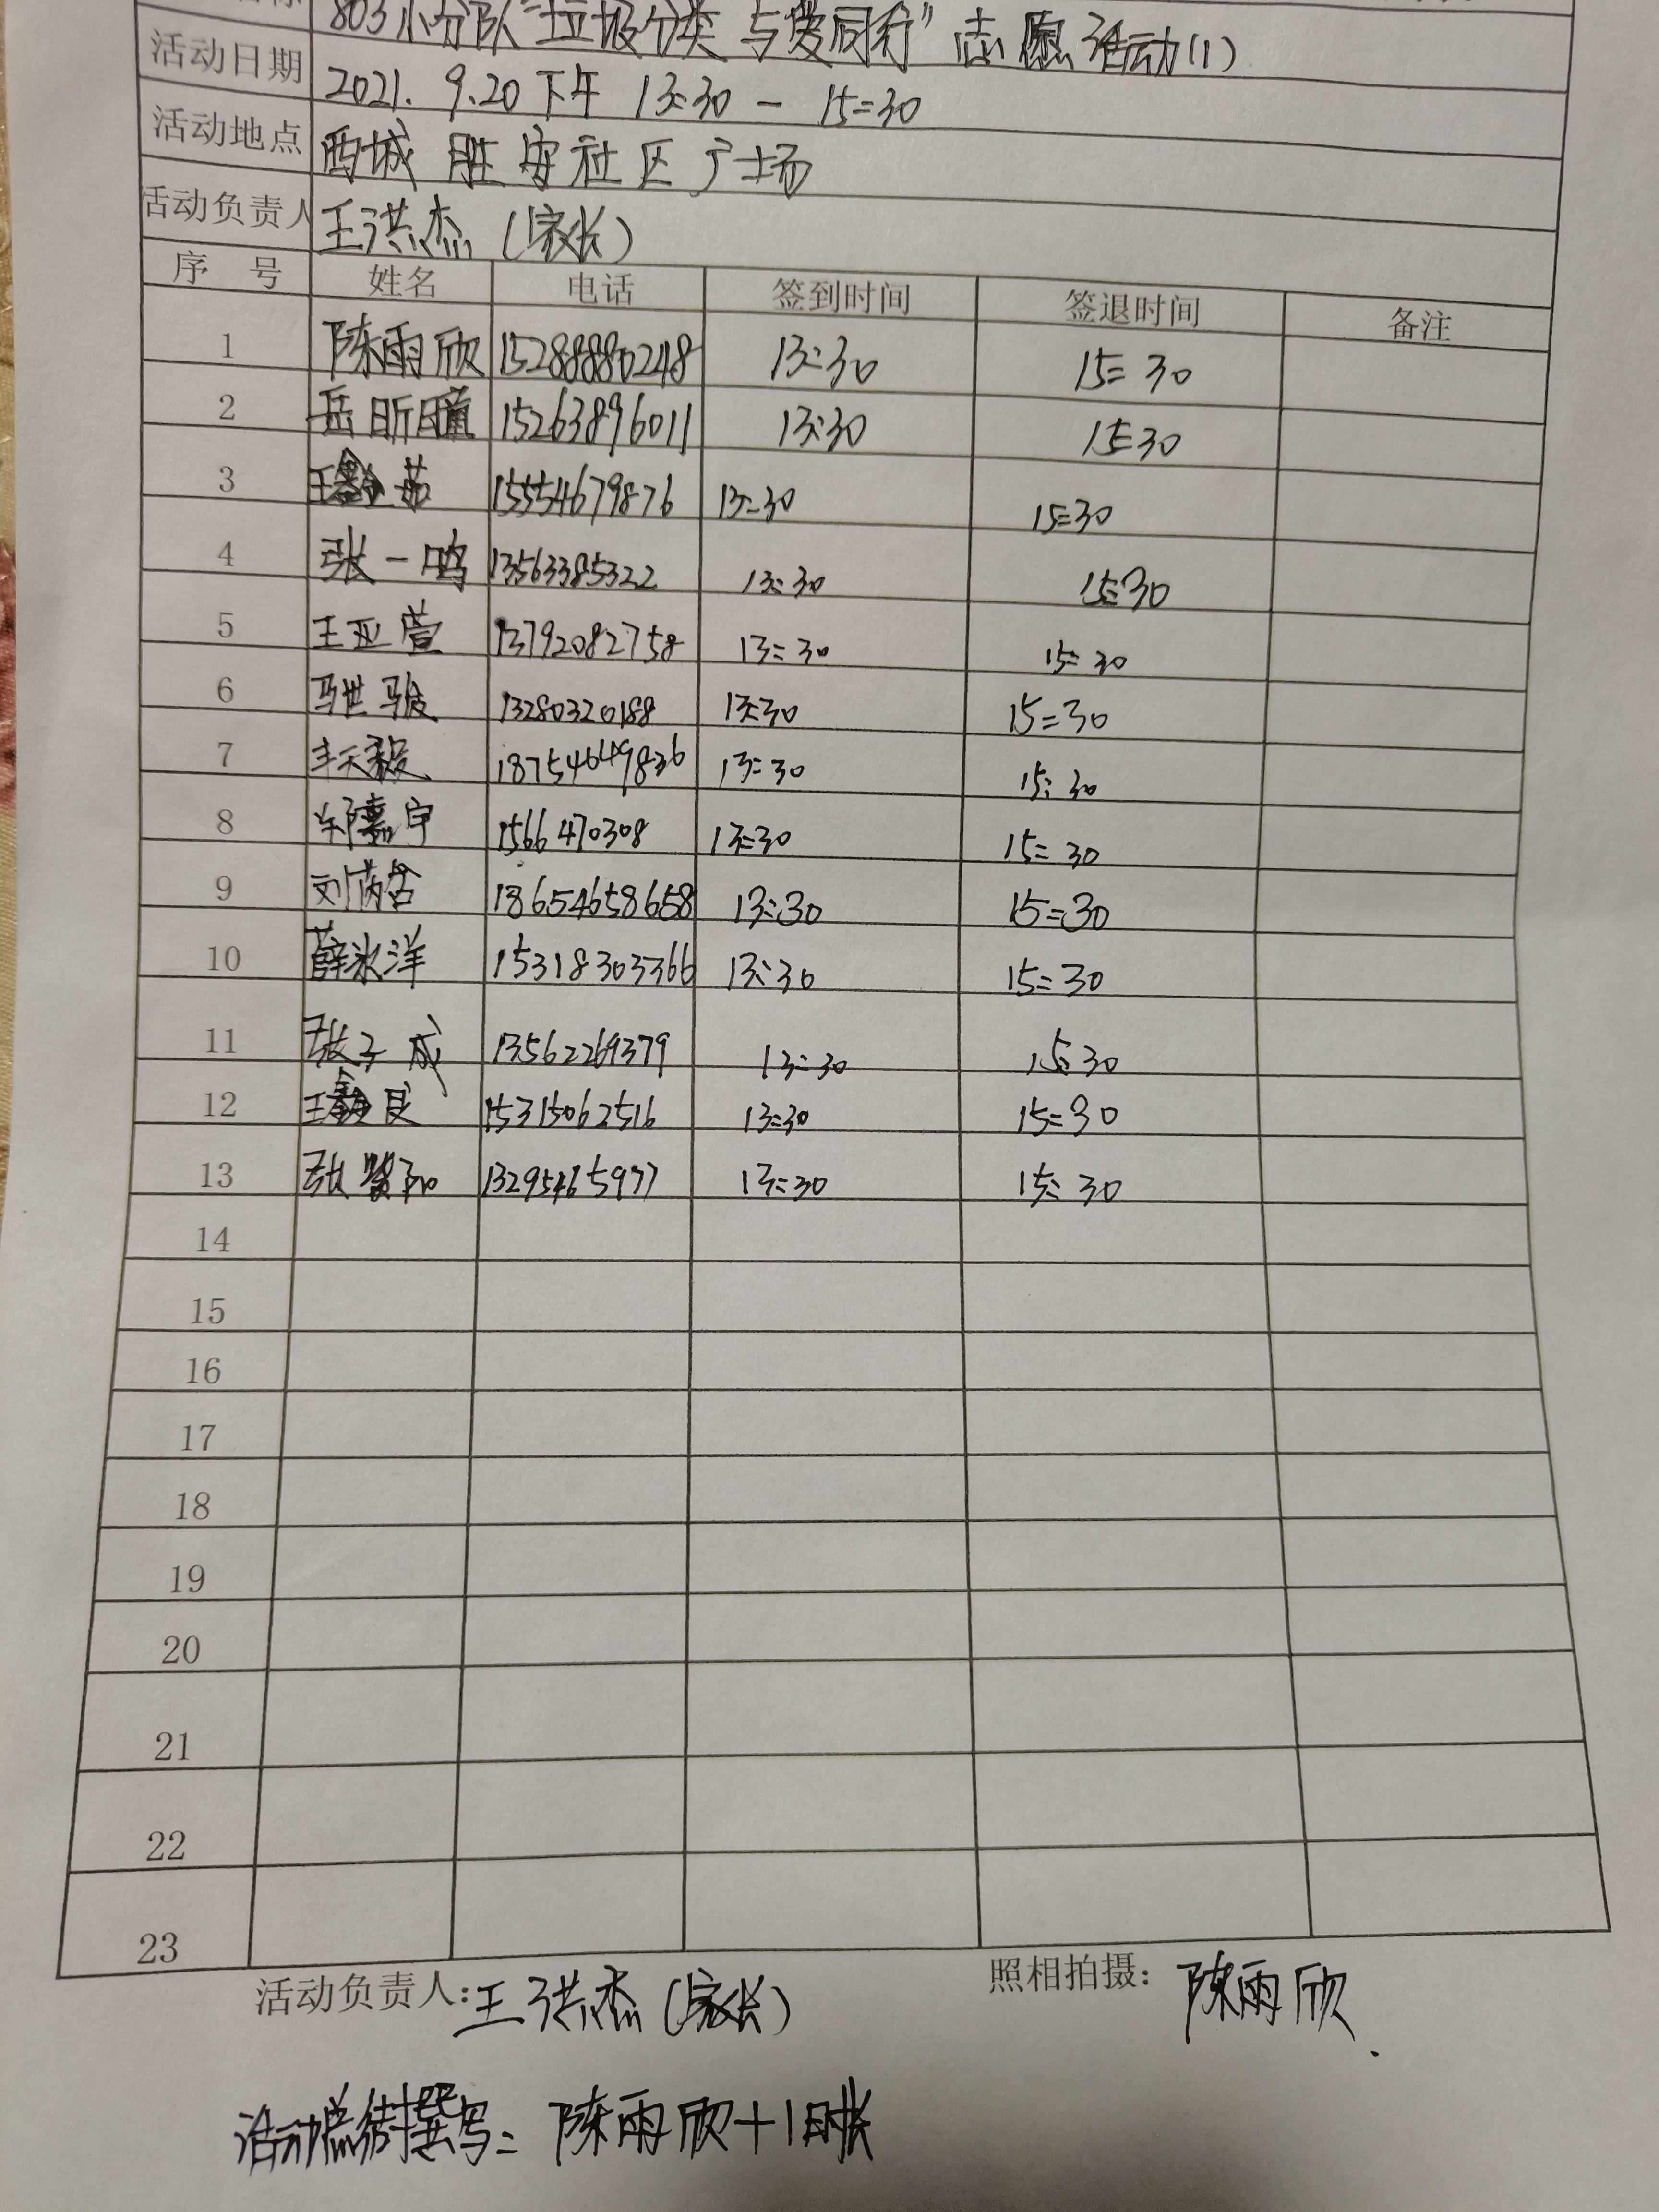 803小分队“垃圾分类 与爱同行”志愿活动(1)
活动日期 2021. 9.20 下午 13:30 - 15:30
活动地点 西城 胜安社区广场
活动负责人 王洪杰 (家长)
序 号 姓名 电话 签到时间 签退时间 备注
1 陈雨欣 15288880248 13:30 15:30
2 岳昕曈 15263896011 13:30 15:30
3 王鑫茹 15554679876 13:30 15:30
4 张一鸣 13563385322 13:30 15:30
5 王亚萱 13792082758 13:30 15:30
6 马世骏 13280320188 13:30 15:30
7 丰天毅 18754649836 13:30 15:30
8 嘉宇 1566470308 13:30 15:30
9 刘芮含 18654658658 13:30 15:30
10 薛冰洋 15318303366 13:30 15:30
11 张子成 13562269379 13:30 15:30
12 王鑫良 15315062516 13:30 15:30
13 张 13295465977 13:30 15:30
14
15
16
17
18
19
20
21
22
23
活动负责人:王洪杰(家长) 照相拍摄: 陈雨欣
活动总结撰写: 陈雨欣+1时长